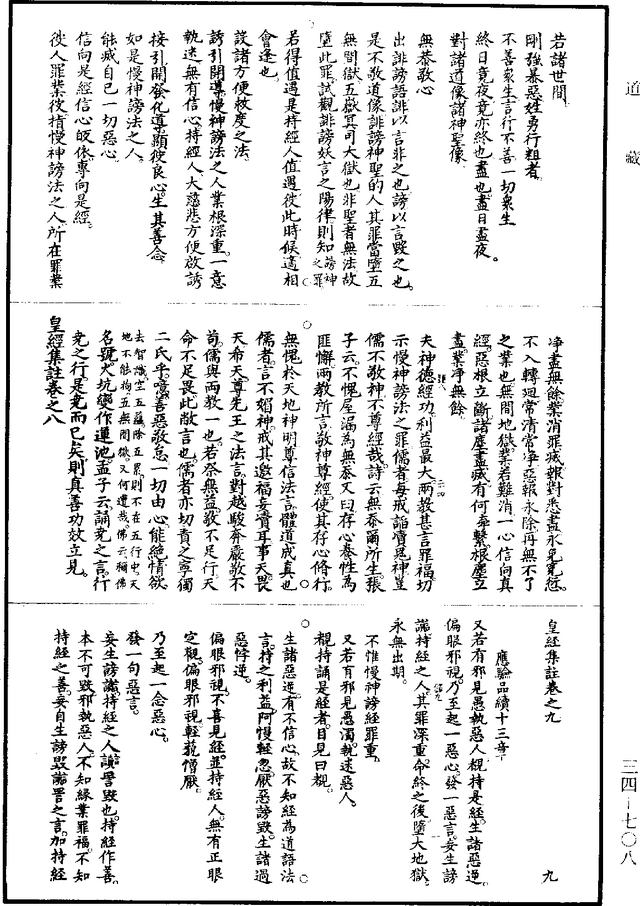 道藏
若諸世間
剛強暴惡姓勇行粗者
不善眾生言行不善一切眾生
終日竟夜竟亦終也盡也盡日盡夜
對諸道像諸神聖像
無恭敬心
出誹謗語誹以言非之也謗以言毀之也
是不敬道像誹謗神聖的人其罪當墮五
無間獄五嶽冥司大獄也非聖者無法故
墮此罪試觀誹謗妖言之陽律則知謗神之罪
若得值遇是持經人值遇彼此時候適相
會逢也
設諸方便救度之法
誘引開導慢神謗法之人業根深重一意
執迷無有信心持經人大慈悲方便啟誘
接引開發化導顯彼良心生其善念
如是慢神謗法之人
能滅自己一切惡心
信向是經信心皈依專向是經
彼人罪業彼指慢神謗法之人所在罪業
淨盡無餘業消罪滅報對悉盡永免冤愆
不入轉迴常清常淨惡報永除再無不了
之業也無間地獄業若難消一心信向真
經惡根立斷諸塵盡滅有何牽繫根塵立
盡業淨無餘
夫神德經功利益最大兩教甚言罪福切
示慢神謗法之罪儒者每戒謟瀆鬼神豈
儒不敬神不尊經哉詩云無忝爾所生張
子云不愧屋漏為無忝又曰存心養性為
匪懈兩教所言敬神尊經使其存心脩行
無愧於天地神明尊信法言體道成真也
儒者言不媚神戒其邀福妄瀆耳事天畏
天希天尊先王之法言對越駿奔嚴敬不
苟儒與兩教一也若祭無益敬不足行天
命不足畏此敵言也儒者亦切責之寧獨
二氏乎噫善惡敬怠一切由心能絕情欲
去智識空五蘊除五累則不在五行中天
地不能拘五無間獄又何遭哉佛云稱佛
名號火坑變作蓮池孟子云誦堯之言行
堯之行是堯而已矣則真善功效立見
皇經集註卷之八
皇經集註卷之九
應驗品續十三章
又若有邪見愚執惡人覩持是經生諸惡逆
偏眼邪視乃至起一惡心發一惡言妄生謗
讟持經之人其罪深重命終之後墮大地獄
永無出期
不惟慢神謗經罪重
又若有邪見愚濁執迷惡人
覩持誦是經者目見曰覩
生諸惡逆有不信心故不知經為道語法
言持之利益阿慢輕忽厭惡謗毀生諸過
惡悖逆
偏眼邪視不喜見經並持經人無有正眼
定觀偏眼邪視輕藐憎厭
乃至起一念惡心
發一句惡言
妄生謗讟持經之人讟詈毀也持經作善
本不可毀邪執惡人不知緣業罪福不知
持經之善妄自生謗毀讟詈之言加持經
三四—七〇八
九